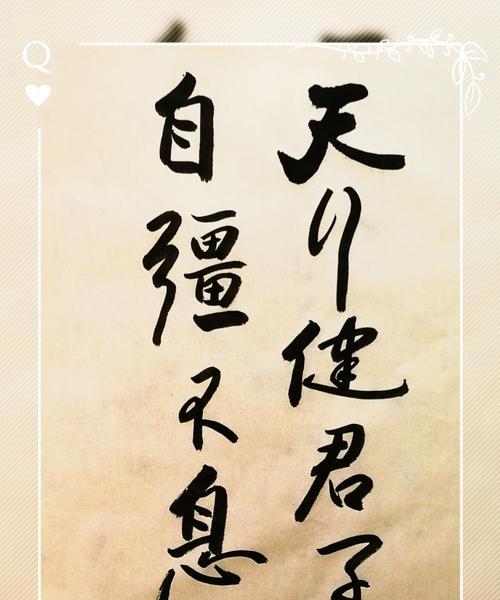 Q
天行健君子
自彊不息